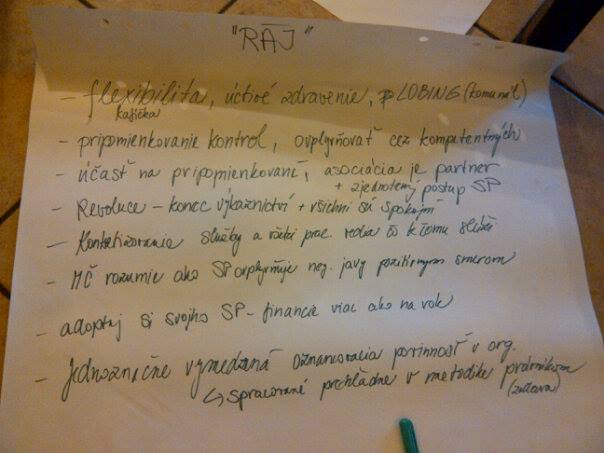 "RAJ"
- flexibilita, úctivé zdravenie, LOBING (komunál)
kafíčka
- pripomienkovanie kontrol, ovplyvňovať cez kompetentných
- účasť na pripomienkovaní, asociácia je partner
+ zjednotený postup SP
- Revoluce - konec výkaznictví + všichni sú spokojní
- služby a všetci prac. vedia čo k tomu slúži
- MČ rozumie ako SP ovplyvňuje neg. javy pozitívnym smerom
- adoptuj si svojho SP - financie viac ako na rok
- Jednoznačne vymedzená oznamovacia povinnosť v org.
↳ spracované prehľadne v metodike